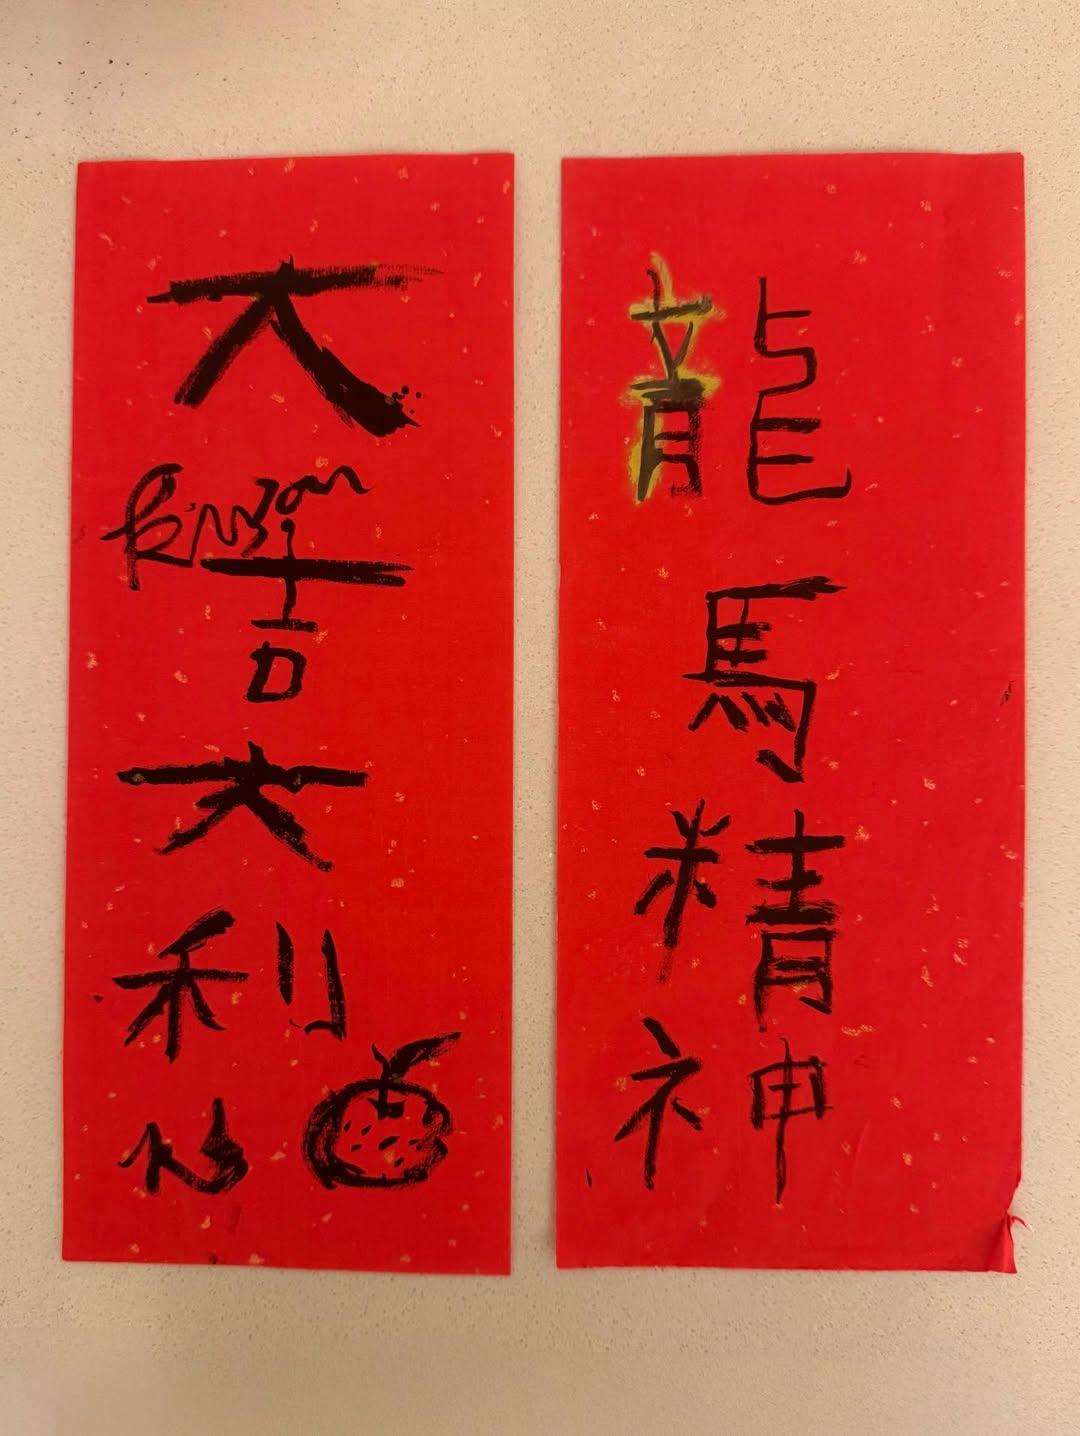 龍馬精神
大吉大利